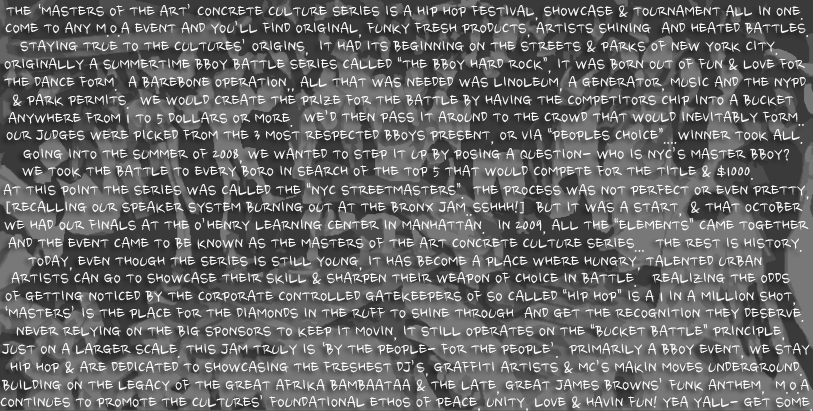 THE 'MASTERS OF THE ART' CONCRETE CULTURE SERIES IS A HIP HOP FESTIVAL, SHOWCASE & TOURNAMENT ALL IN ONE.
COME TO ANY M.O.A EVENT AND YOU'LL FIND ORIGINAL, FUNKY FRESH PRODUCTS, ARTISTS SHINING AND HEATED BATTLES.
STAYING TRUE TO THE CULTURES' ORIGINS, IT HAD ITS BEGINNING ON THE STREETS & PARKS OF NEW YORK CITY.
ORIGINALLY A SUMMERTIME BBOY BATTLE SERIES CALLED "THE BBOY HARD ROCK", IT WAS BORN OUT OF FUN & LOVE FOR
THE DANCE FORM. A BAREBONE OPERATION,, ALL THAT WAS NEEDED WAS LINOLEUM, A GENERATOR, MUSIC AND THE NYPD
& PARK PERMITS. WE WOULD CREATE THE PRIZE FOR THE BATTLE BY HAVING THE COMPETITORS CHIP INTO A BUCKET
ANYWHERE FROM 1 TO 5 DOLLARS OR MORE. WE'D THEN PASS IT AROUND TO THE CROWD THAT WOULD INEVITABLY FORM.
OUR JUDGES WERE PICKED FROM THE 3 MOST RESPECTED BBOYS PRESENT, OR VIA "PEOPLES CHOICE"....WINNER TOOK ALL.
GOING INTO THE SUMMER OF 2008, WE WANTED TO STEP IT UP BY POSING A QUESTION- WHO IS NYC'S MASTER BBOY?
WE TOOK THE BATTLE TO EVERY BORO IN SEARCH OF THE TOP 5 THAT WOULD COMPETE FOR THE TITLE & $1000.
AT THIS POINT THE SERIES WAS CALLED THE "NYC STREETMASTERS". THE PROCESS WAS NOT PERFECT OR EVEN PRETTY,
[RECALLING OUR SPEAKER SYSTEM BURNING OUT AT THE BRONX JAM..SSHHH!] BUT IT WAS A START, & THAT OCTOBER
WE HAD OUR FINALS AT THE O'HENRY LEARNING CENTER IN MANHATTAN. IN 2009, ALL THE "ELEMENTS" CAME TOGETHER
AND THE EVENT CAME TO BE KNOWN AS THE MASTERS OF THE ART CONCRETE CULTURE SERIES... THE REST IS HISTORY.
TODAY, EVEN THOUGH THE SERIES IS STILL YOUNG, IT HAS BECOME A PLACE WHERE HUNGRY, TALENTED URBAN
ARTISTS CAN GO TO SHOWCASE THEIR SKILL & SHARPEN THEIR WEAPON OF CHOICE IN BATTLE. REALIZING THE ODDS
OF GETTING NOTICED BY THE CORPORATE CONTROLLED GATEKEEPERS OF SO CALLED "HIP HOP" IS A 1 IN A MILLION SHOT,
'MASTERS' IS THE PLACE FOR THE DIAMONDS IN THE RUFF TO SHINE THROUGH AND GET THE RECOGNITION THEY DESERVE.
NEVER RELYING ON THE BIG SPONSORS TO KEEP IT MOVIN, IT STILL OPERATES ON THE "BUCKET BATTLE" PRINCIPLE,
JUST ON A LARGER SCALE. THIS JAM TRULY IS 'BY THE PEOPLE- FOR THE PEOPLE'. PRIMARILY A BBOY EVENT, WE STAY
HIP HOP & ARE DEDICATED TO SHOWCASING THE FRESHEST DJ'S, GRAFFITI ARTISTS & MC'S MAKIN MOVES UNDERGROUND.
BUILDING ON THE LEGACY OF THE GREAT AFRIKA BAMBAATAA & THE LATE, GREAT JAMES BROWNS' FUNK ANTHEM, M.O.A
CONTINUES TO PROMOTE THE CULTURES' FOUNDATIONAL ETHOS OF PEACE, UNITY, LOVE & HAVIN FUN! YEA YALL- GET SOME.